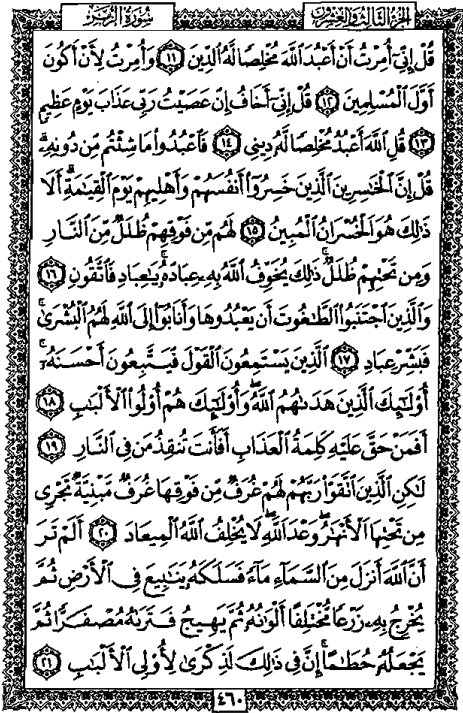 الجزء الثالث والعشرون سورة الزمر
قُلْ إِنِّىٓ أُمِرْتُ أَنْ أَعْبُدَ ٱللَّهَ مُخْلِصًا لَّهُ ٱلدِّينَ ١١ وَأُمِرْتُ لِأَنْ أَكُونَ
أَوَّلَ ٱلْمُسْلِمِينَ ١٢ قُلْ إِنِّىٓ أَخَافُ إِنْ عَصَيْتُ رَبِّى عَذَابَ يَوْمٍ عَظِيمٍ
١٣ قُلِ ٱللَّهَ أَعْبُدُ مُخْلِصًا لَّهُۥ دِينِى ١٤ فَٱعْبُدُوا۟ مَا شِئْتُم مِّن دُونِهِۦ ۗ
قُلْ إِنَّ ٱلْخَٰسِرِينَ ٱلَّذِينَ خَسِرُوٓا۟ أَنفُسَهُمْ وَأَهْلِيهِمْ يَوْمَ ٱلْقِيَٰمَةِ ۗ أَلَا
ذَٰلِكَ هُوَ ٱلْخُسْرَانُ ٱلْمُبِينُ ١٥ لَهُم مِّن فَوْقِهِمْ ظُلَلٌ مِّنَ ٱلنَّارِ
وَمِن تَحْتِهِمْ ظُلَلٌ ۚ ذَٰلِكَ يُخَوِّفُ ٱللَّهُ بِهِۦ عِبَادَهُۥ ۚ يَٰعِبَادِ فَٱتَّقُونِ ١٦
وَٱلَّذِينَ ٱجْتَنَبُوا۟ ٱلطَّٰغُوتَ أَن يَعْبُدُوهَا وَأَنَابُوٓا۟ إِلَى ٱللَّهِ لَهُمُ ٱلْبُشْرَىٰ ۚ
فَبَشِّرْ عِبَادِ ١٧ ٱلَّذِينَ يَسْتَمِعُونَ ٱلْقَوْلَ فَيَتَّبِعُونَ أَحْسَنَهُۥٓ ۚ
أُو۟لَٰٓئِكَ ٱلَّذِينَ هَدَىٰهُمُ ٱللَّهُ ۖ وَأُو۟لَٰٓئِكَ هُمْ أُو۟لُوا۟ ٱلْأَلْبَٰبِ ١٨
أَفَمَنْ حَقَّ عَلَيْهِ كَلِمَةُ ٱلْعَذَابِ أَفَأَنتَ تُنقِذُ مَن فِى ٱلنَّارِ ١٩
لَٰكِنِ ٱلَّذِينَ ٱتَّقَوْا۟ رَبَّهُمْ لَهُمْ غُرَفٌ مِّن فَوْقِهَا غُرَفٌ مَّبْنِيَّةٌ تَجْرِى
مِن تَحْتِهَا ٱلْأَنْهَٰرُ ۖ وَعْدَ ٱللَّهِ ۖ لَا يُخْلِفُ ٱللَّهُ ٱلْمِيعَادَ ٢٠ أَلَمْ تَرَ
أَنَّ ٱللَّهَ أَنزَلَ مِنَ ٱلسَّمَآءِ مَآءً فَسَلَكَهُۥ يَنَٰبِيعَ فِى ٱلْأَرْضِ ثُمَّ
يُخْرِجُ بِهِۦ زَرْعًا مُّخْتَلِفًا أَلْوَٰنُهُۥ ثُمَّ يَهِيجُ فَتَرَىٰهُ مُصْفَرًّا ثُمَّ
يَجْعَلُهُۥ حُطَٰمًا ۚ إِنَّ فِى ذَٰلِكَ لَذِكْرَىٰ لِأُو۟لِى ٱلْأَلْبَٰبِ ٢١
٤٦٠